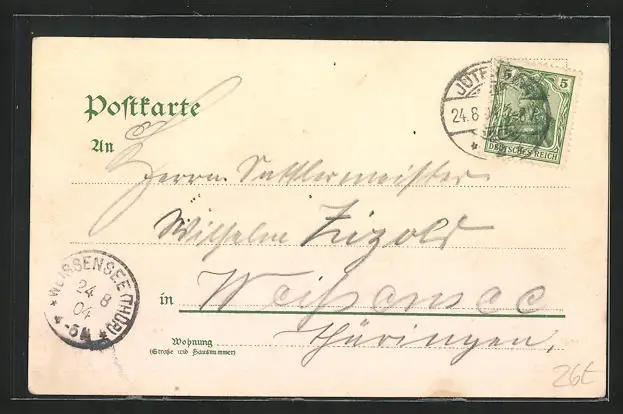 Postkarte
An
Herrn Sattlermeister
Wilhelm Zizold
in Weißensee
Thüringen,
Wohnung
(Straße und Hausnummer)
5 5
DEUTSCHES REICH
24.8
* WEISSENSEE (THÜR) *
24 8
04
4-5N
26E